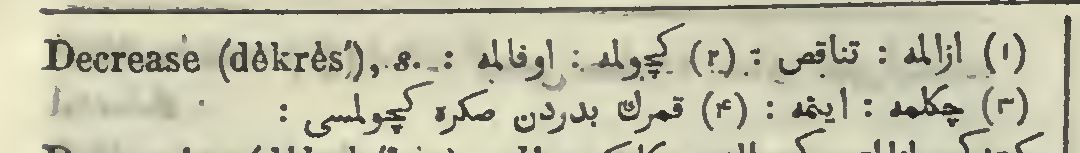 Decrease (dèkrès'), s. (۱) ازالمه : تناقص : (۲) كچولمه : اوفالمه :
(۳) چكلمه : اينمه : (۴) قمرك بدردن صكره كچولمسی :